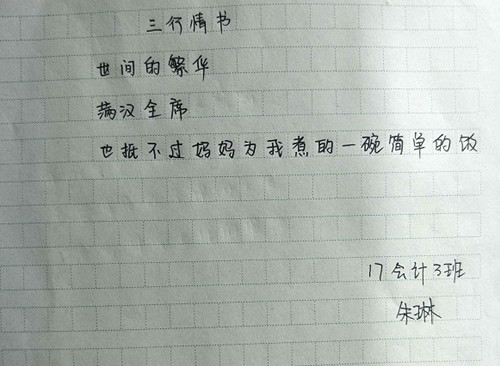 三行情书
世间的繁华
满汉全席
也抵不过妈妈为我煮的一碗简单的饭
17会计3班
朱琳